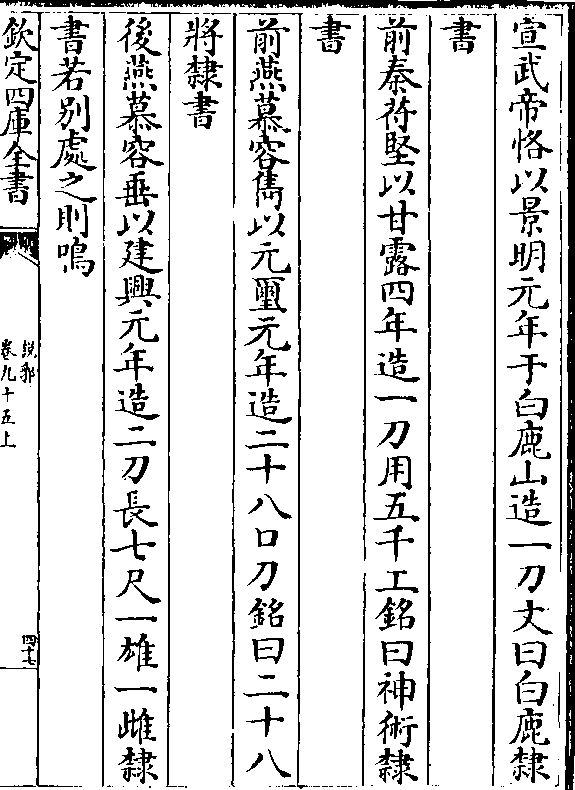 宣武帝恪以景明元年于白鹿山造一刀文曰白鹿隸
書
前秦苻堅以甘露四年造一刀用五千工銘曰神術隸
書
前燕慕容儁以元璽元年造二十八口刀銘曰二十八
將隸書
後燕慕容垂以建興元年造二刀長七尺一雄一雌隸
書若別處之則鳴
欽定四庫全書
說郛
卷九十五上
四十七